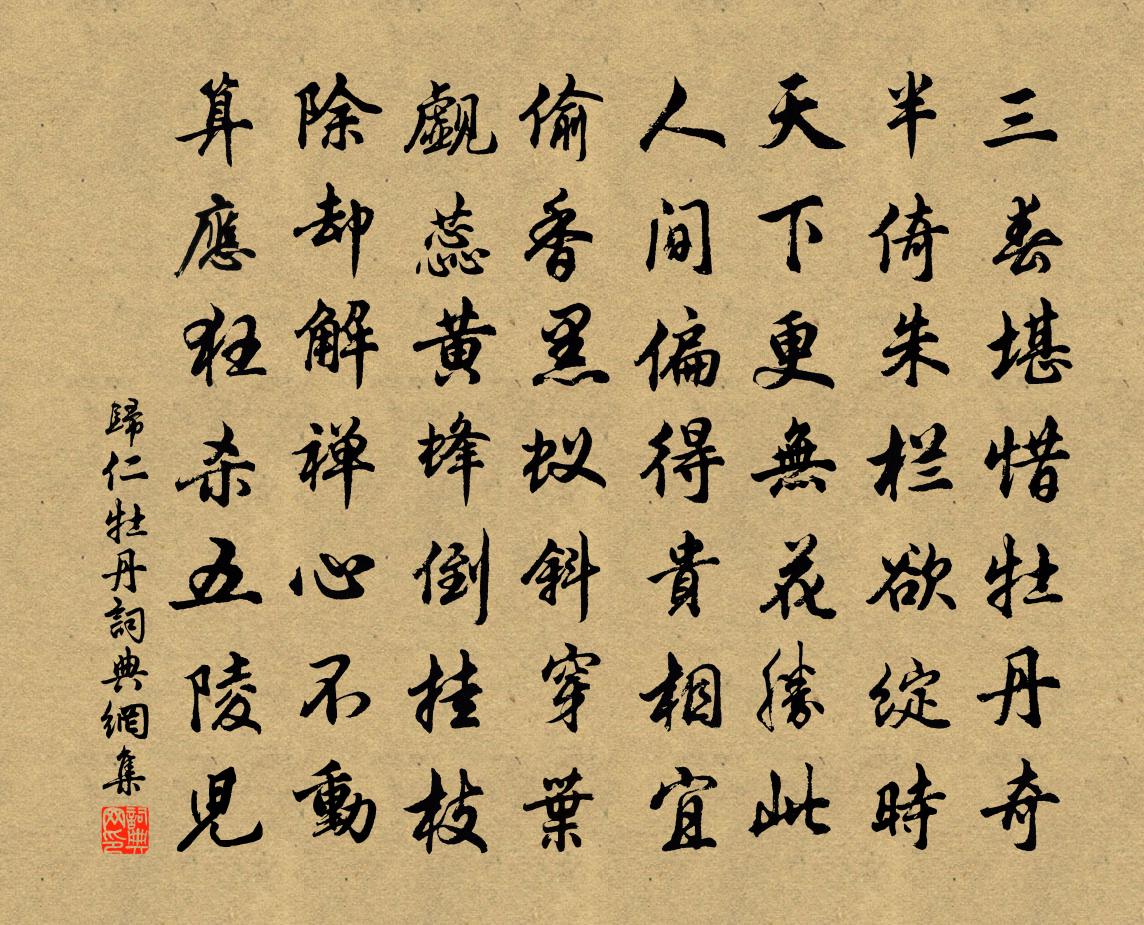 三春堪惜牡丹奇
半倚朱栏欲綻時
天下更無花勝此
人间偏得貴相宜
偷香黑蚁斜穿葉
觑蕊黄蜂倒挂枝
除却解禅心不動
算應狂杀五陵児
歸仁牡丹詞典網集
詞典
网印